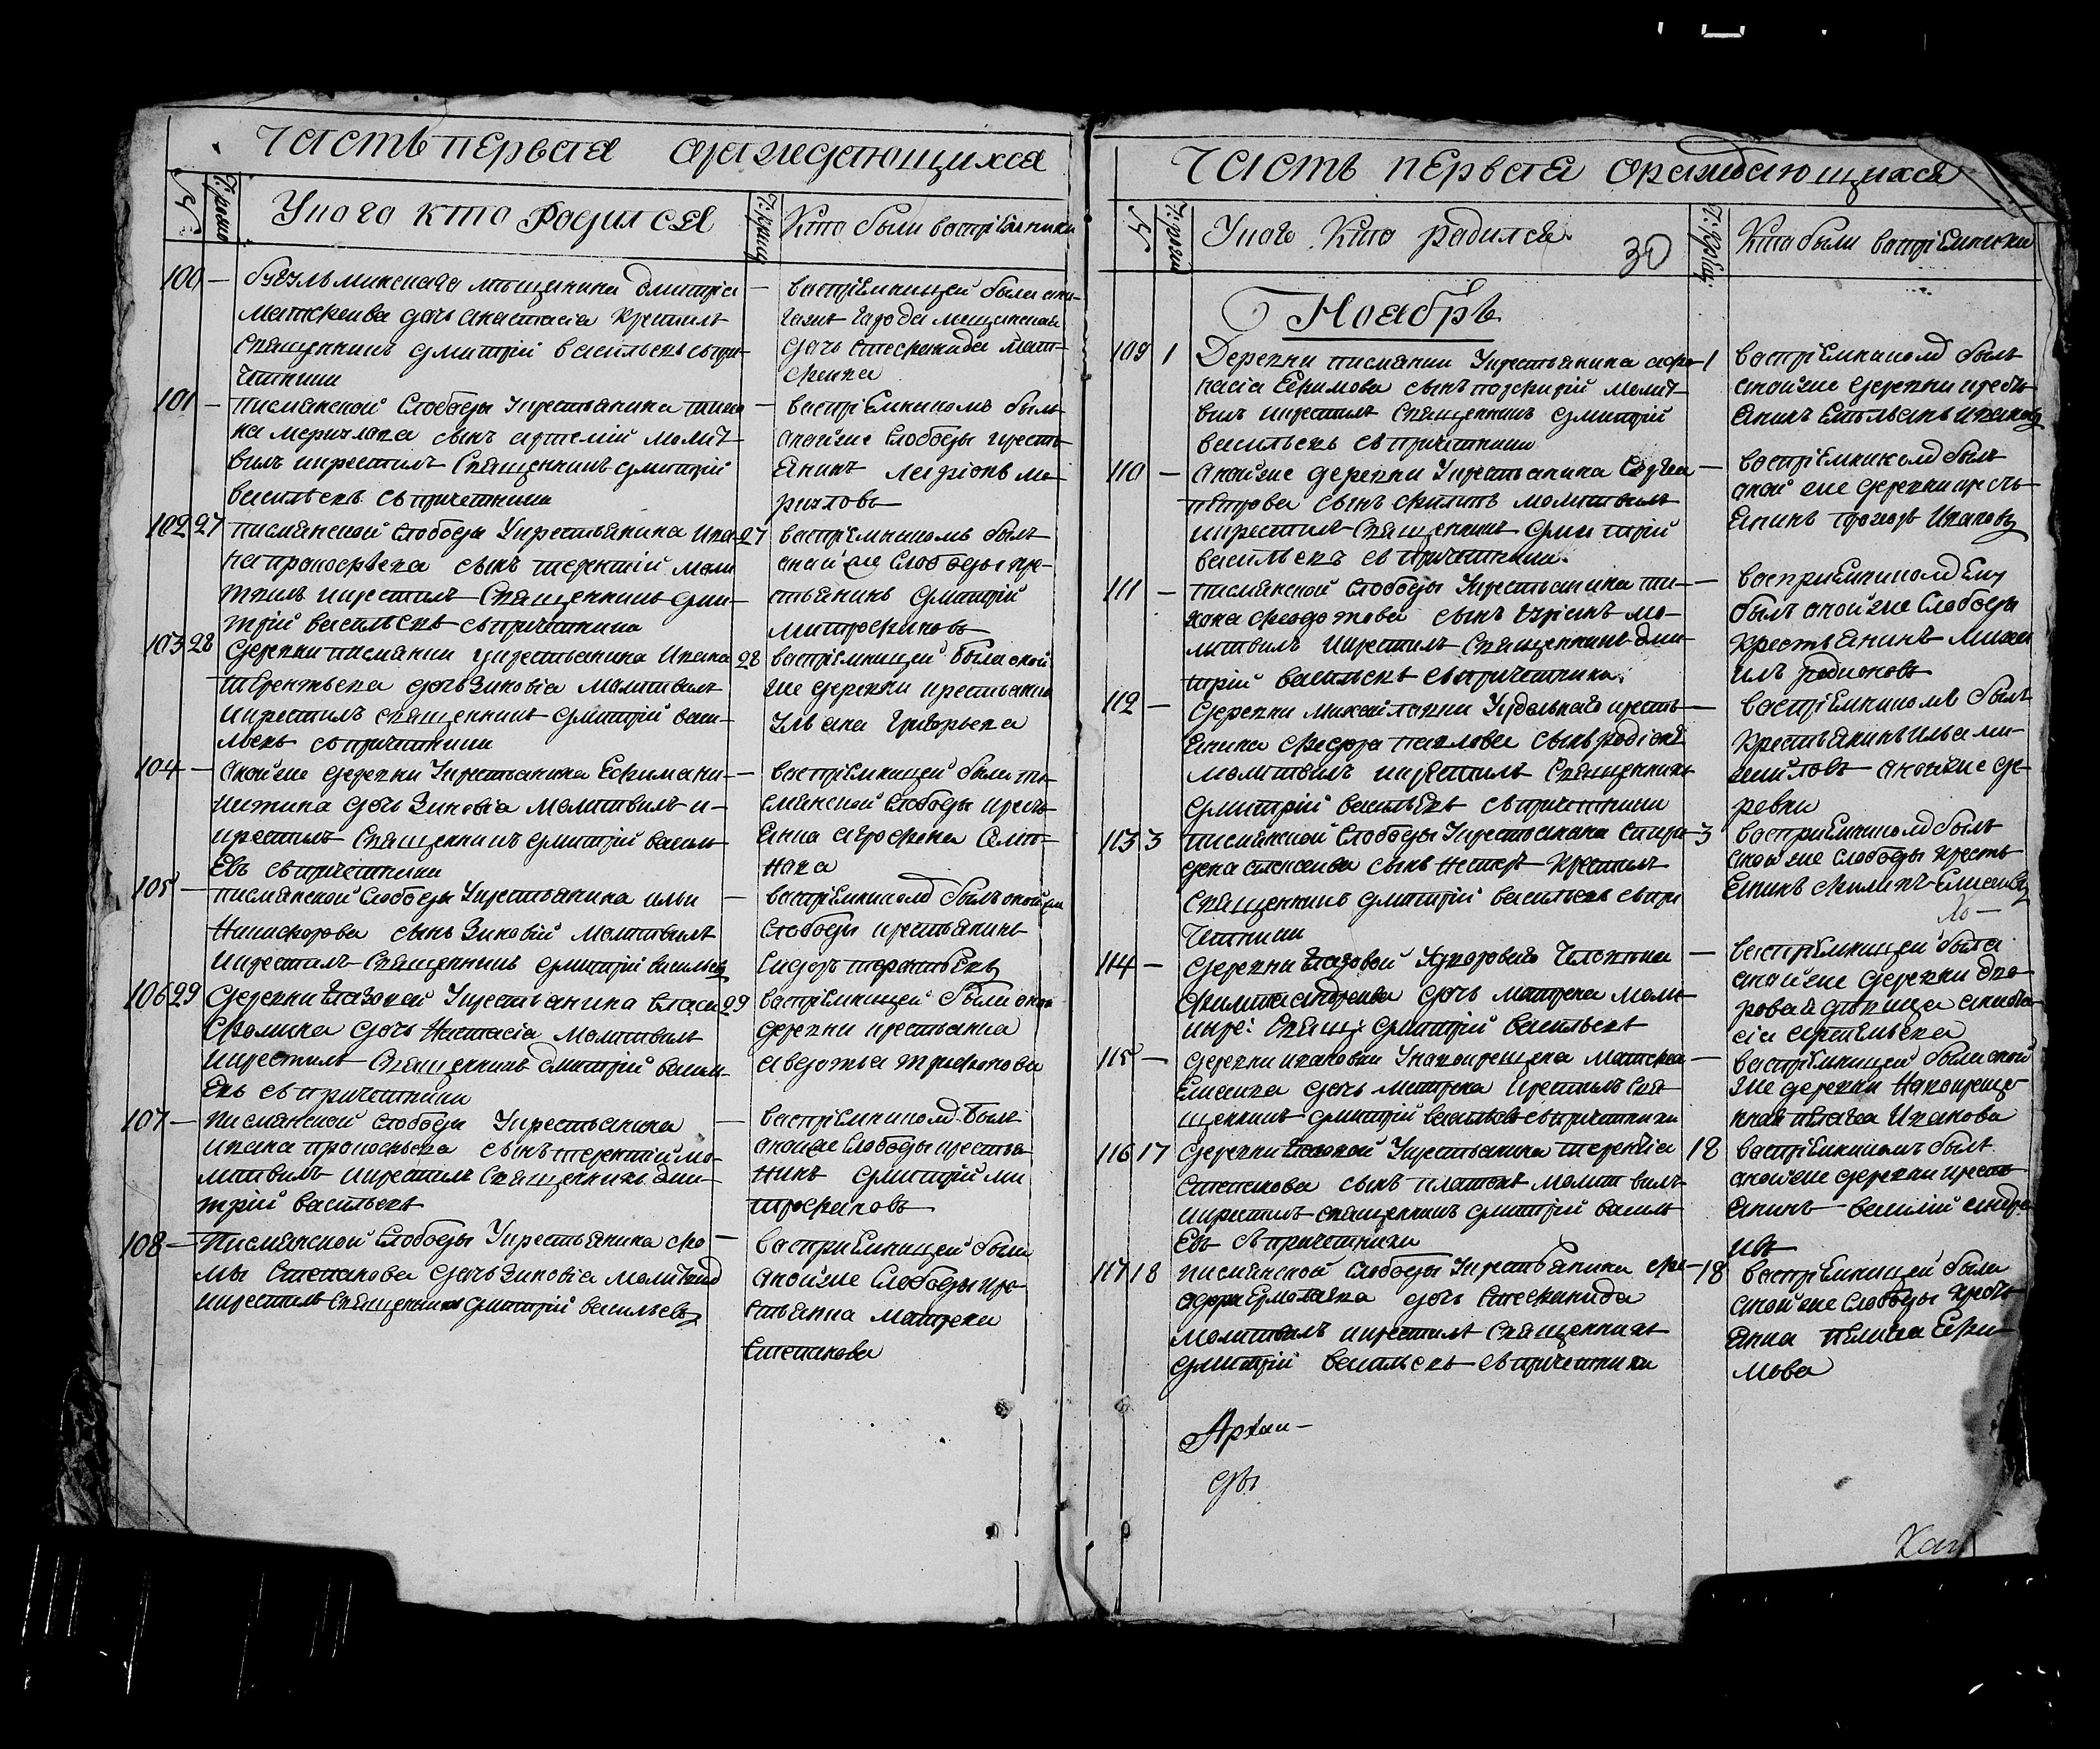 Часть первая ораждающихся
№ Ч: рожд У кого кто родился Ч: крещ Кто были воспріемники
100 — бугульминскаго мѣщенина дмитріа
матфеива дочь анастасіа крестилъ
священникъ дмитрій васильевъ съ при
читники
— воспріемницей была
города мещанская
дочь стефанида мат-
феива
101 — писмянской Слободы у крестьянина
сынъ артемій молит-
вилъ и крестилъ Священникъ дмитрій
васильевъ съ причетники
— воспріемникомъ былъ
аной же Слободы кресть
янинъ
102 27 писмянской слободы у крестьянина ива-
на прокофьева сынъ терентій моли
твилъ и крестилъ Священникъ дми-
трій васильевъ съ причетники
27 воспріемникомъ былъ
аной же Слободы кре-
стьянинъ дмитрій
митрофановъ
103 28 деревни писмянки у крестьянина ивана
терентьева дочь зиновіа молитвилъ
и крестилъ священникъ дмитрій васи-
льевъ съ причетники
28 воспріемницей была оной
же деревни крестьянка
ульана григорьева
104 — аной же деревни у крестьянина Ефима ни-
китина дочь Зиновіа молитвилъ и-
крестилъ Священникъ дмитрій василь
Евъ съ причетники
— воспріемницей была пи-
смянской слободы кресть
Янка
105 — писмянской Слободы у крестьянина ильи
Никифорова сынъ Зиновій молитвилъ
и крестилъ Священникъ дмитрій васильевъ
— воспріемникомъ былъ оной же
слободы крестьянинъ
Сидоръ терентьевъ
106 29 деревни у крестьянина власа
фомина дочь Настасіа молитвилъ
и крестилъ Священникъ дмитрій васил-
Евъ съ причетники
29 воспріемницей была оной
деревни крестьянка
авдотьа трифонова
107 — писмянской слободы у крестьянина
ивана прокофьева сынъ терентій мо-
литвилъ и крестилъ Священникъ дми-
трій васильевъ
— воспріемникомъ былъ
аной же Слободы крестьа
нинъ дмитрій ми
трофановъ
108 — Писмянской Слободы у крестьянина фо
мы Степанова дочь Зиновіа молитвилъ
и крестилъ Священникъ дмитрій васильевъ
— воспріемницей была
аной же Слободы кре-
стьянка матрена
Степанова
Часть первая ораждающихся
№ Ч: рожд У каго Кто радился 30 Ч: крещ Кто были воспріемники
Ноабрь
109 1 Деревни писмянки у крестьянина афа
насіа Ефимова сынъ молит-
вилъ и крестилъ Священникъ дмитрій
васильевъ съ причетники
1 воспріемникомъ былъ
аной же деревни кресть
Янинъ Емельанъ ивановъ
110 — аной же деревни у крестьянина Сергеа
петрова сынъ филипъ молитвилъ
и крестилъ Священникъ дмитрій
васильевъ съ причетники.
— воспріемникомъ былъ
аной же деревни кресть
Янинъ ивановъ
111 — писмянской слободы у крестьянина ти-
хона феодотова сынъ мо-
литвилъ и крестилъ Священникъ дми-
трій васильевъ съ причетники.
— воспріемникомъ Ему
былъ аной же Слободы
крестьянинъ Михаи
илъ родионовъ
112 — деревни михайловки у удельнаго кресть
янина феодора павлова сынъ родіонъ
молитвилъ и крестилъ Священникъ
дмитрій васильевъ съ причетники
— воспріемникомъ былъ
крестьянинъ ильа ми-
хайловъ аной же де-
ревни
113 3 писмянской Слободы у крестьянина Спири
дона алексеива сынъ нестеръ крестилъ
Священникъ дмитрій васильевъ съ при
четники
3 воспріемникомъ былъ
аной же слободы кресть
Янинъ филипъ Елисеивъ
114 — деревни у двороваго человека
филипа андреива дочь матрена моли
и кре: Свящ: дмитрій васильевъ
— воспріемницей была
аной же деревни дво-
роваа девица анаста
сіа
115 — деревни ивановки у новокрещена матфеа
Елисеива дочь матрена крестилъ Свя-
щенникъ дмитрій васильевъ съ причетники
— воспріемницей была аной
же деревни Новокреще
ннаа пелагеа Иванова
116 17 деревни у крестьянина терентіа
степанова сынъ платонъ молит вилъ
и крестилъ священникъ дмитрій василь
Евъ съ причетники
18 воспріемникомъ былъ
аной же деревни кресть
янинъ василій андре
ивъ
117 18 писмянской слободы у крестьянина фе-
одора Ермолаева дочь Стефанида
молитвилъ и крестилъ Священникъ
дмитрій васильевъ съ причетники
18 воспріемницей была
аной же Слободы кресть
янка пелагеа Ефи-
мова